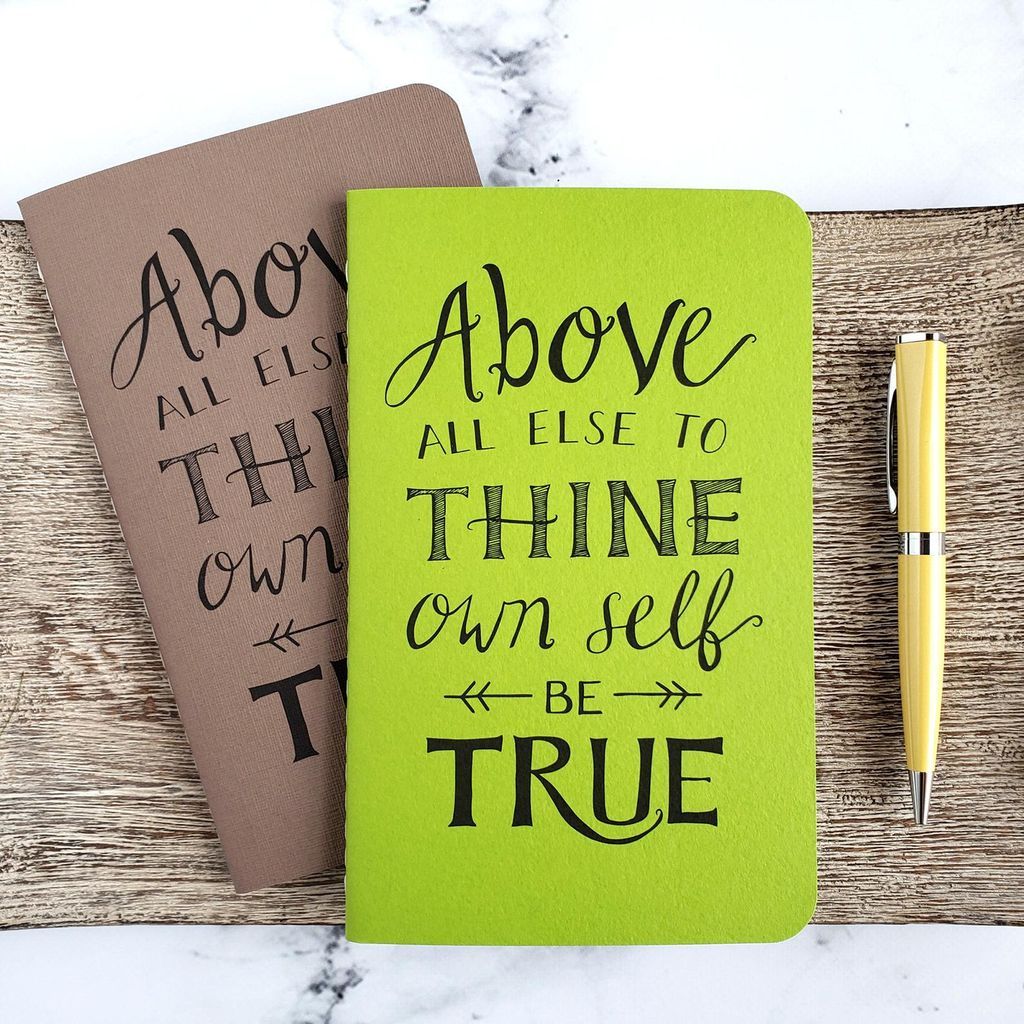 Above
ALL ELSE TO
THINE
own self
BE
TRUE
Abov
ALL ELSE
THI
own
T